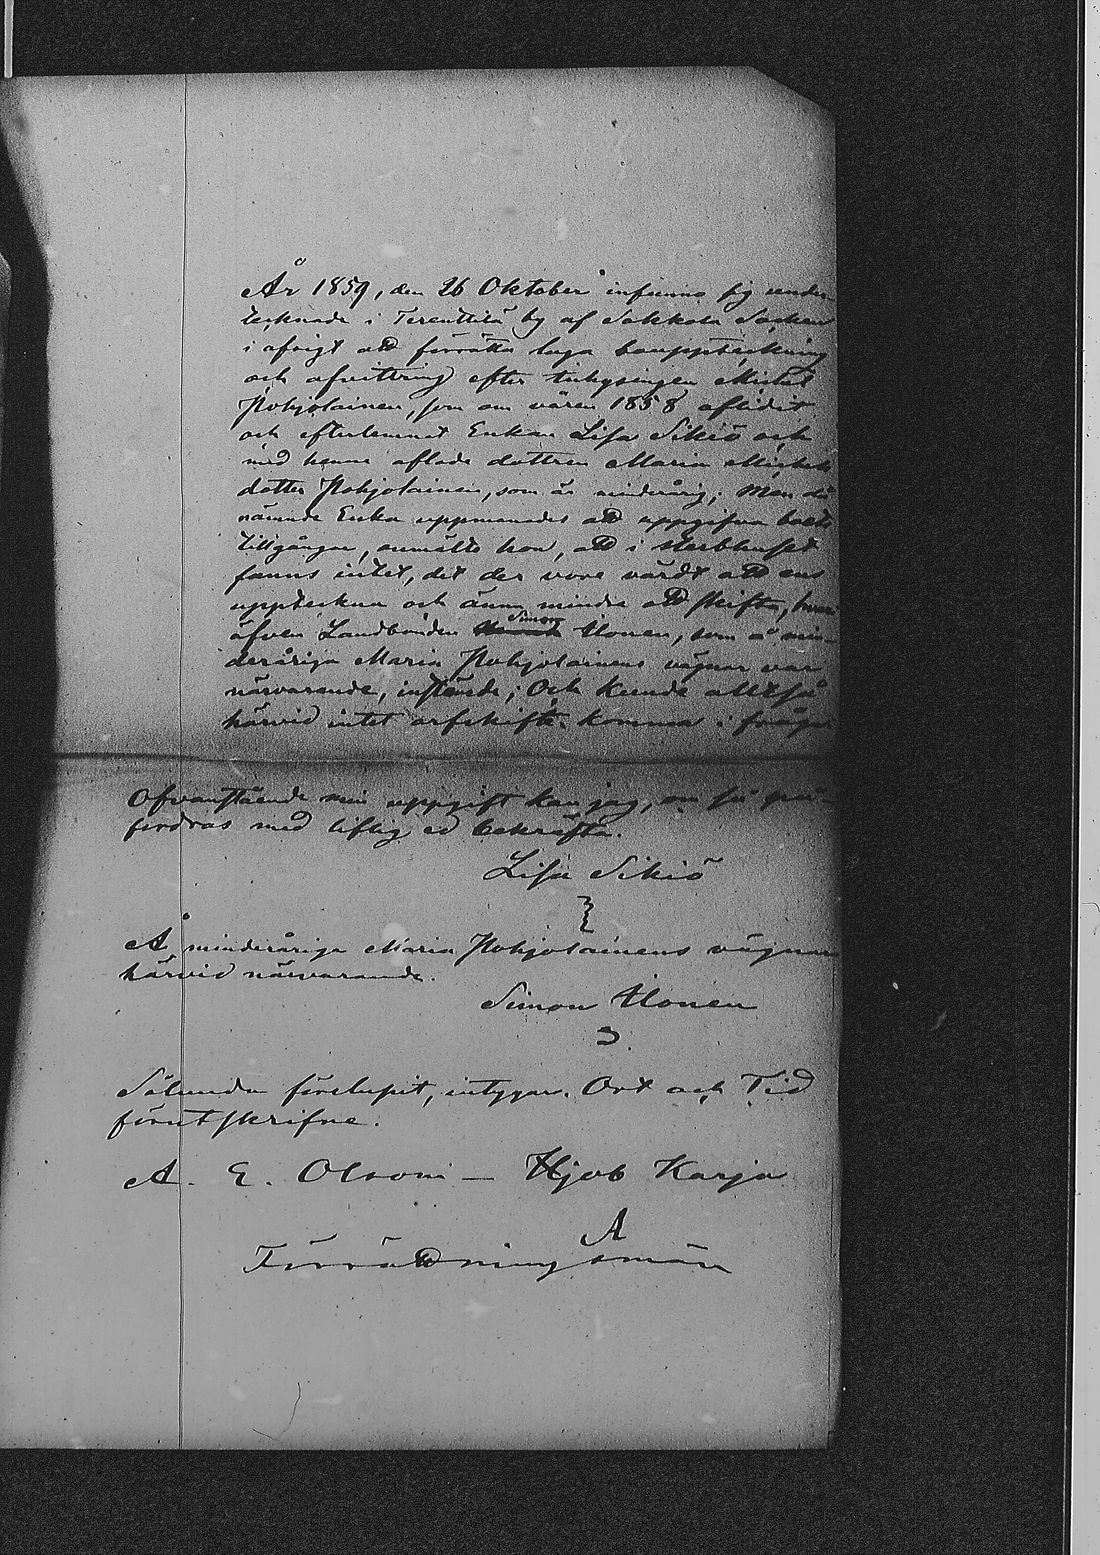 År 1859, den 26 Oktober infunno sig under-
tecknade i Terenttilä by af Sakkola Socken
i afsigt att förrätta laga bouppteckning
och afvittring efter inhysingen Michel
Pohjolainen, som om våren 1858 aflidit
och efterlemnat Enkan Lisa Sikiö och
med henne aflade dottren Maria Michels
dotter Pohjolainen, som är minderårig; Men då
nämnde Enka uppmanades att uppgifva boets
tillgångar, anmälte hon, att i sterbhuset
fanns intet, det der vore värdt att ens
uppteckna och ännu mindre att skifta, hvari
äfven Landbonden Simon Ilonen, som å min-
deråriga Maria Pohjolainens vägnar var
närvarande, instämde; Och kunde alltså
härvid intet arfskifte komma i fråga.
Ofvanstående min uppgift kan jag, om så på-
fordras med liflig ed bekräfta.
Lisa Sikiö
Å minderåriga Maria Pohjolainens vägnar
härvid närvarande.
Simon Ilonen
Sålunda förelupit, intygar. Ort och Tid
förutskrifne.
A. E. Olsoni — Hjob Karja
Förrättningsmän